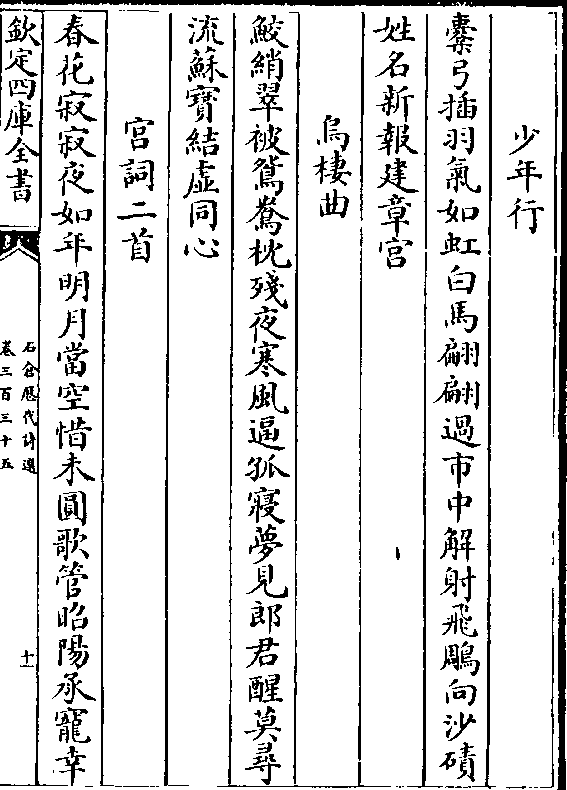 少年行
櫜弓插羽氣如虹白馬翩翩過市中解射飛鵰向沙磧
姓名新報建章宫
烏棲曲
鮫綃翠被鴛鴦枕殘夜寒風逼孤寢夢見郎君醒莫尋
流蘇寶結虚同心
宫詞二首
春花寂寂夜如年明月當空惜未圓歌管昭陽承寵幸
欽定四庫全書
石倉歷代詩選
卷三百三十五
十一